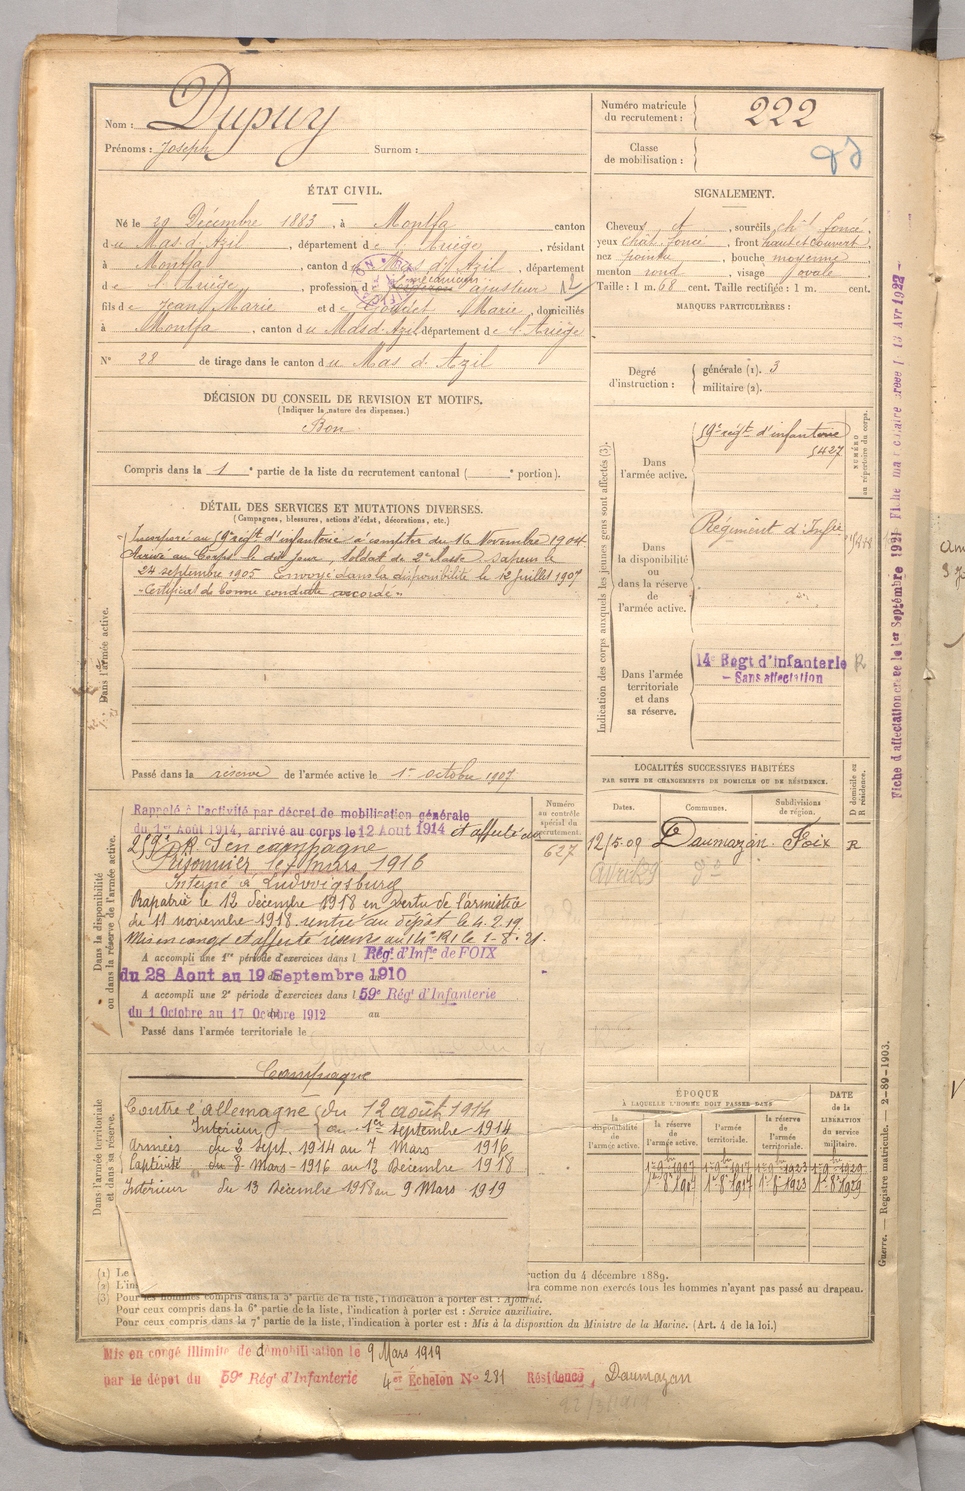 Nom : Dupuy
Prénoms : Joseph Surnom :
Numéro matricule du recrutement : 222
Classe de mobilisation :
ÉTAT CIVIL.
Né le 29 Décembre 1883, à Montfa canton
du Mas d'Azil, département de l'Ariège, résidant
à Montfa, canton du Mas d'Azil, département
de l'Ariège, profession de ajusteur mécanicien
fils de Jean Marie et de Marie, domiciliés
à Montfa, canton du Mas d'Azil département de l'Ariège
N° 28 de tirage dans le canton du Mas d'Azil
DÉCISION DU CONSEIL DE REVISION ET MOTIFS.
(Indiquer la nature des dispenses.)
Bon
Compris dans la 1e partie de la liste du recrutement cantonal ( e portion).
SIGNALEMENT.
Cheveux dt, sourcils cht foncé,
yeux chât foncé, front haut et couvert,
nez pointu, bouche moyenne
menton rond, visage ovale
Taille : 1 m. 68 cent. Taille rectifiée : 1 m. cent.
MARQUES PARTICULIÈRES :
Degré d'instruction : générale (1). 3
militaire (2).
DÉTAIL DES SERVICES ET MUTATIONS DIVERSES.
(Campagnes, blessures, actions d'éclat, décorations, etc.)
Dans l'armée active.
Incorporé au 59e régt d'infanterie à compter du 16 Novembre 1904
Arrivé au Corps le dit jour, Soldat de 2e classe. Sapeur le
24 septembre 1905 Envoyé dans la disponibilité le 12 juillet 1907
"Certificat de bonne conduite accordé"
Passé dans la réserve de l'armée active le 1er octobre 1907
Indication des corps auxquels les jeunes gens sont affectés (3).
NUMÉRO au répertoire du corps.
Dans l'armée active.
59e régt d'infanterie
5427
Dans la disponibilité ou dans la réserve de l'armée active.
Régiment d'Infie
Dans l'armée territoriale et dans sa réserve.
14e Regt d'infanterie R
- Sans affectation
LOCALITÉS SUCCESSIVES HABITÉES
PAR SUITE DE CHANGEMENTS DE DOMICILE OU DE RÉSIDENCE.
Dates. Communes. Subdivisions de région. D domicile ou R résidence.
12/5-09 Daumazan. Foix R
Dans la disponibilité ou dans la réserve de l'armée active.
Numéro au contrôle spécial du recrutement.
627
Rappelé à l'activité par décret de mobilisation générale
du 1er Août 1914, arrivé au corps le 12 Aout 1914 et affecté au
259e R.I en campagne
Prisonnier le 7 mars 1916
Interné à Ludwigsburg
Rapatrié le 12 décembre 1918 en vertu de l'armistice
du 11 novembre 1918. rentré au dépôt le 4.2.19
Mis en congé et affecté réserve au 14e RI le 1-8-21.
A accompli une 1re période d'exercices dans l Rég. d'Infie de FOIX
du 28 Aout au 19 Septembre 1910
A accompli une 2e période d'exercices dans l 59e Rég d'Infanterie
du 1 Octobre au 17 Octobre 1912 au
Passé dans l'armée territoriale le
Dans l'armée territoriale et dans sa réserve.
Campagne
Contre l'allemagne du 12 août 1914
Intérieur au 1er Septembre 1914
Armées du 2 Sept. 1914 au 7 Mars 1916
Captivité du 8 Mars-1916 au 12 Décembre 1918
Intérieur du 13 Décembre 1918 au 9 Mars 1919
ÉPOQUE
À LAQUELLE L'HOMME DOIT PASSER DANS
la disponibilité de l'armée active. la réserve de l'armée active. l'armée territoriale. la réserve de l'armée territoriale.
DATE de la LIBÉRATION du service militaire.
1er 8bre 1907 1er 8bre 1917 1er 8bre 1923 1er 8bre 1929
(1) Le
ruction du 4 décembre 1889.
(2) L'in
dra comme non exercés tous les hommes n'ayant pas passé au drapeau.
(3) Pour les hommes compris dans la 5e partie de la liste, l'indication à porter est : Ajourné.
Pour ceux compris dans la 6e partie de la liste, l'indication à porter est : Service auxiliaire.
Pour ceux compris dans la 7e partie de la liste, l'indication à porter est : Mis à la disposition du Ministre de la Marine. (Art. 4 de la loi.)
Mis en congé illimité de démobilisation le 9 Mars 1919
par le dépot du 59e Rég d'Infanterie 4e Échelon N° 281 Résidence, Daumazan
Guerre. — Registre matricule. — 2-89-1903.